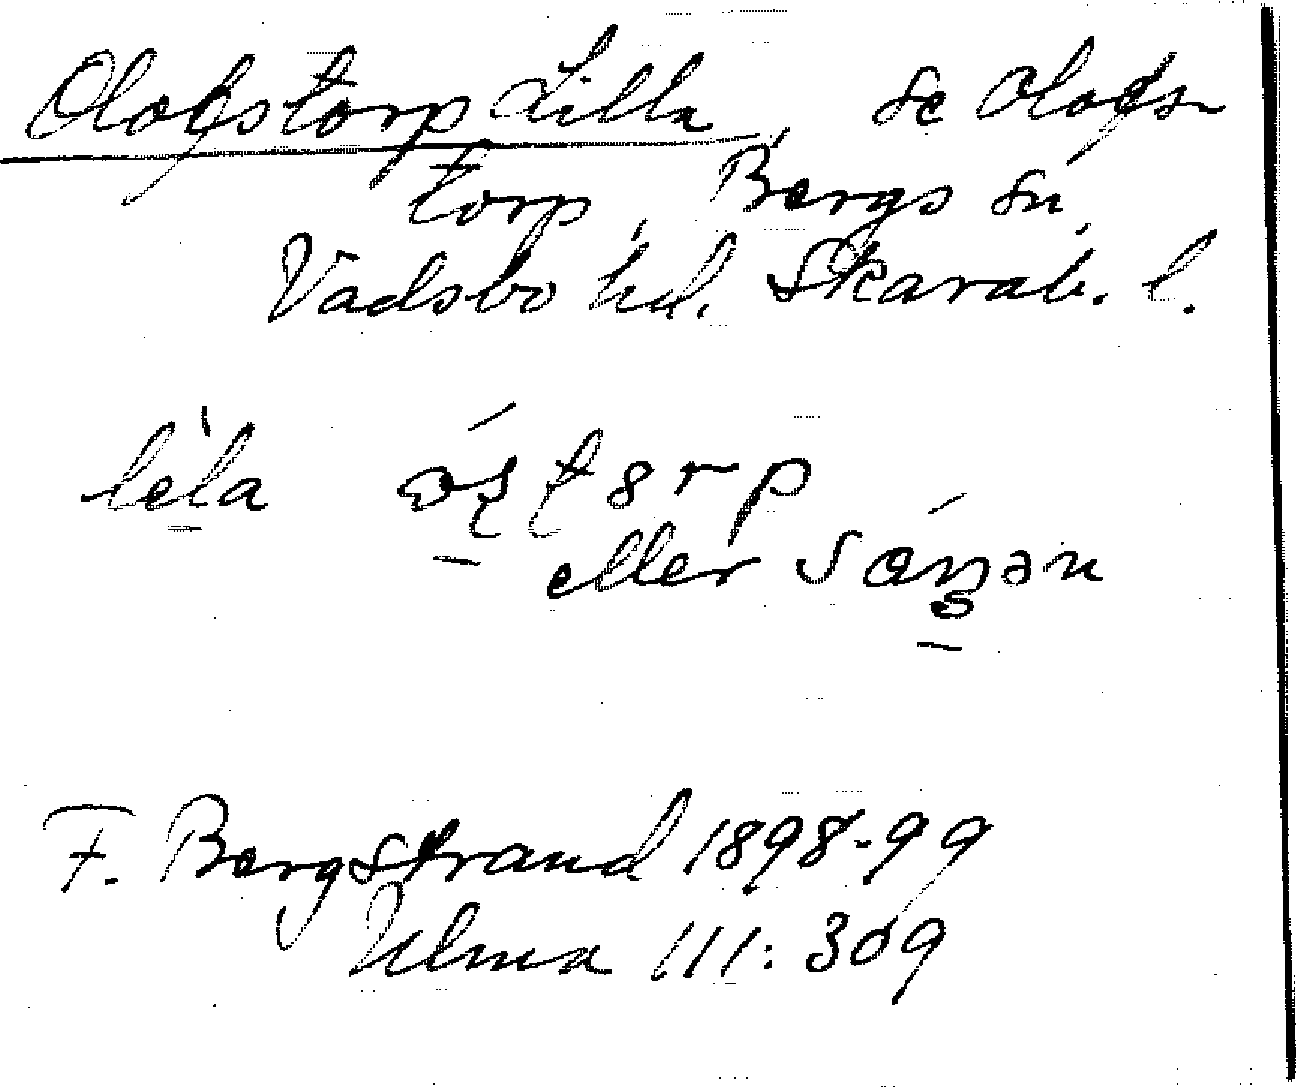 Olofstorp Lilla, se Olofs-
torp, Bergs sn,
Vadsbo hd. Skarab. l.
lela
eller
F. Bergstrand 1898-99
Ulma 111:309